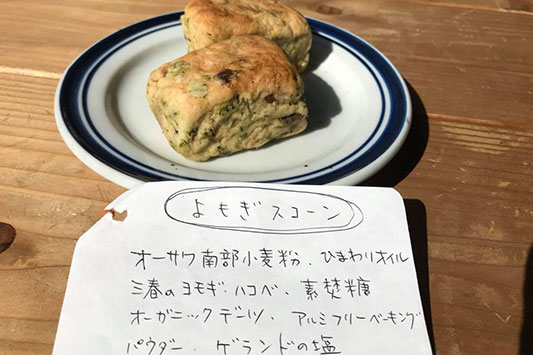 よもぎスコーン
オーサワ南部小麦粉、ひまわりオイル
三春のヨモギ・ハコベ、素焚糖
オーガニックデーツ、アルミフリーベーキング
パウダー、ゲランドの塩